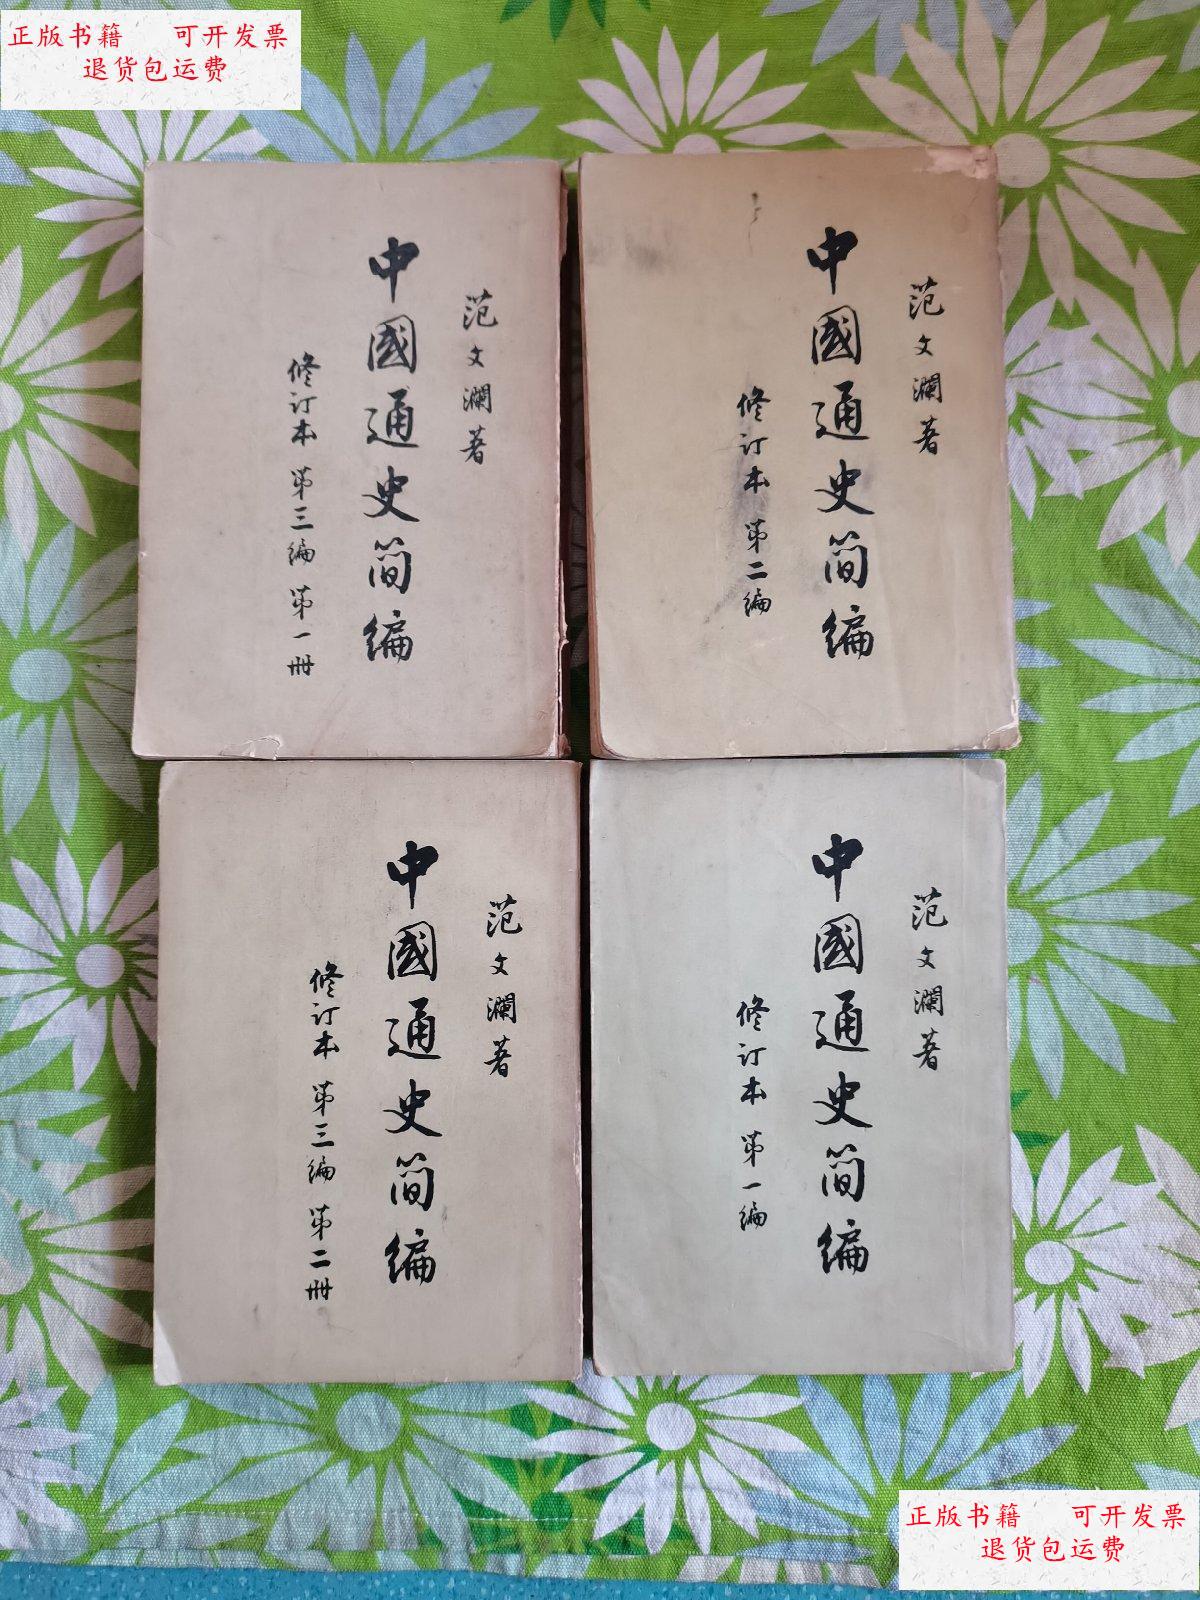 正版书籍 可开发票
退货包运费
范文瀾著
中國通史简编
修订本 第三编 第一册
范文瀾著
中國通史简编
修订本 第二编
范文瀾著
中國通史简编
修订本 第三编 第二册
范文瀾著
中國通史简编
修订本 第一编
正版书籍 可开发票
退货包运费